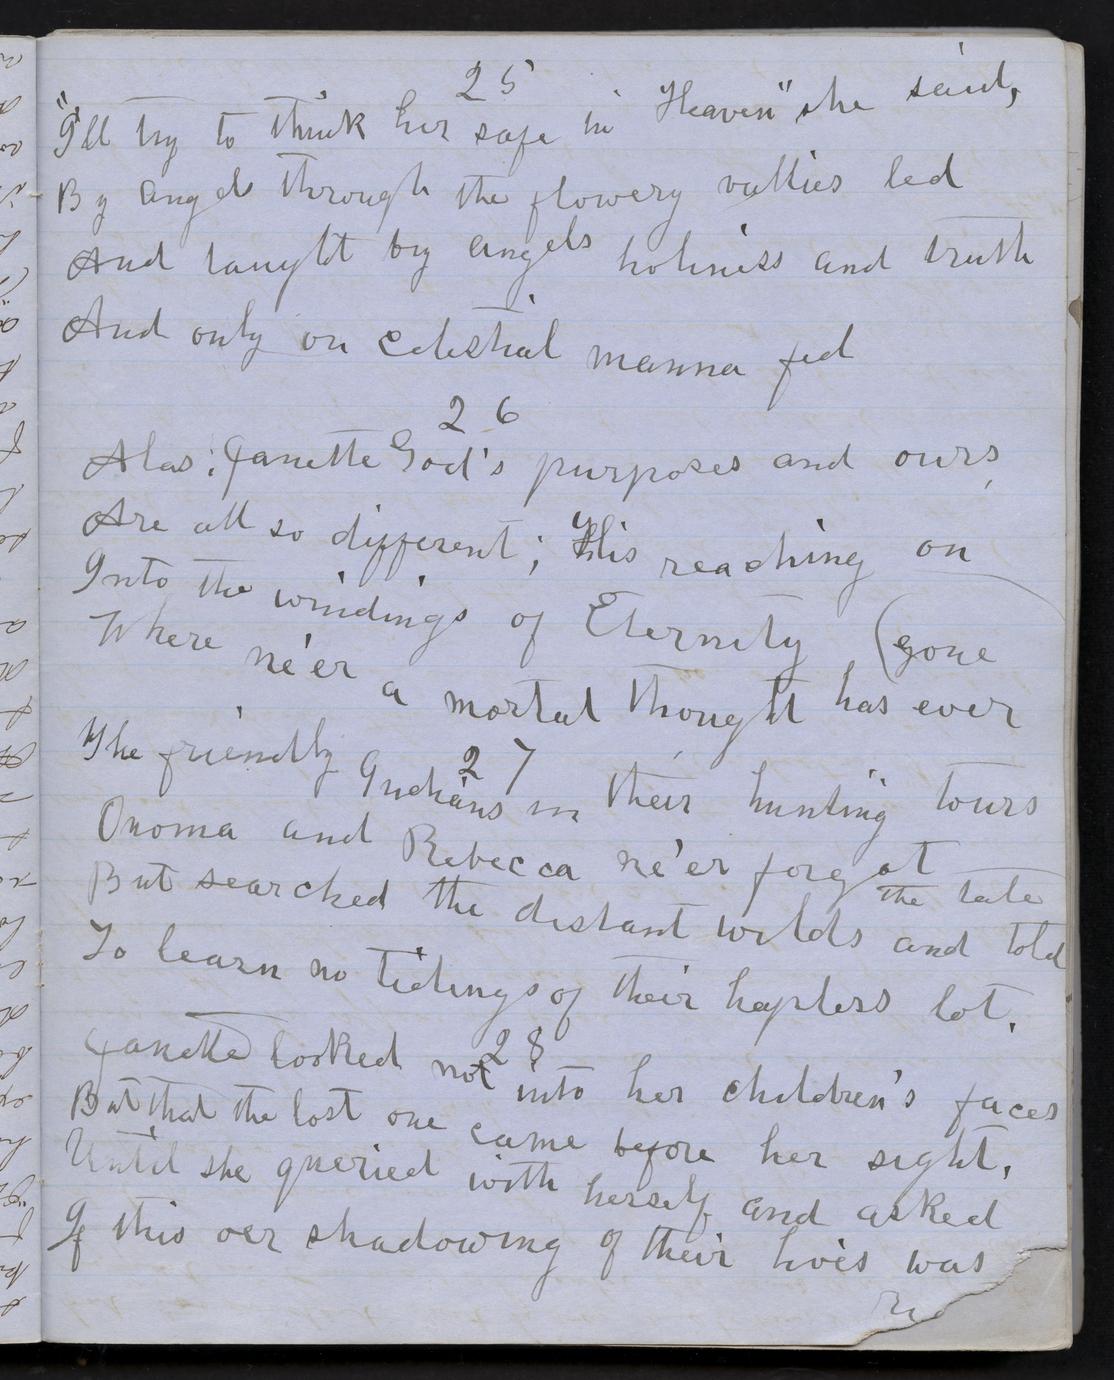 25
"I'll try to think her safe in Heaven" she said,
By angels through the flowery vallies led
And taught by angels holiness and truth
And only on celestial manna fed
26
Alas! Janette God's purposes and ours,
Are all so different; His reaching on
Into the windings of Eternity (gone
Where ne'er a mortal thought has ever
27
The friendly Indians in their hunting tours
Onoma and Rebecca ne'er forgot
But searched the distant wilds and told the tale
To learn no tidings of their hapless lot.
28
Janette looked not into her children's faces
But that the lost one came before her sight.
Until she queried with herself and asked
If this oer shadowing of their lives was